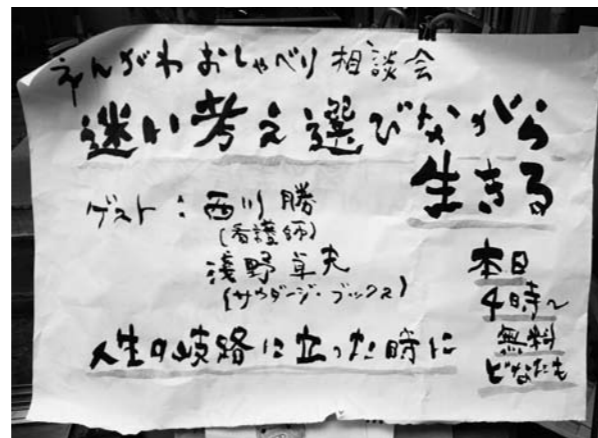 えんがわおしゃべり相談会
迷い考え選びながら
生きる
ゲスト:西川勝
(看護師)
淺野卓夫
(サウダージ・ブックス)
人生の岐路に立った時に
本日
4時〜
無料
どなたも